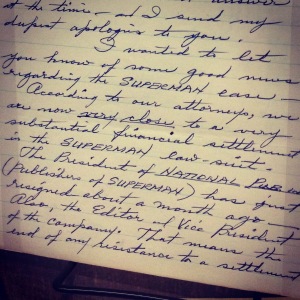 at the time — and I send my
dupest apologies to you.
I wanted to let
you know of some good news
regarding the SUPERMAN case —
According to our attorneys, we
are now very close to a very
substantial financial settlement
in the SUPERMAN law-suit.
The President of NATIONAL
(Publishers of SUPERMAN) has just
resigned about a month ago.
Also, the Editor and Vice President
of the company. That means the
end of any resistance to a settlement